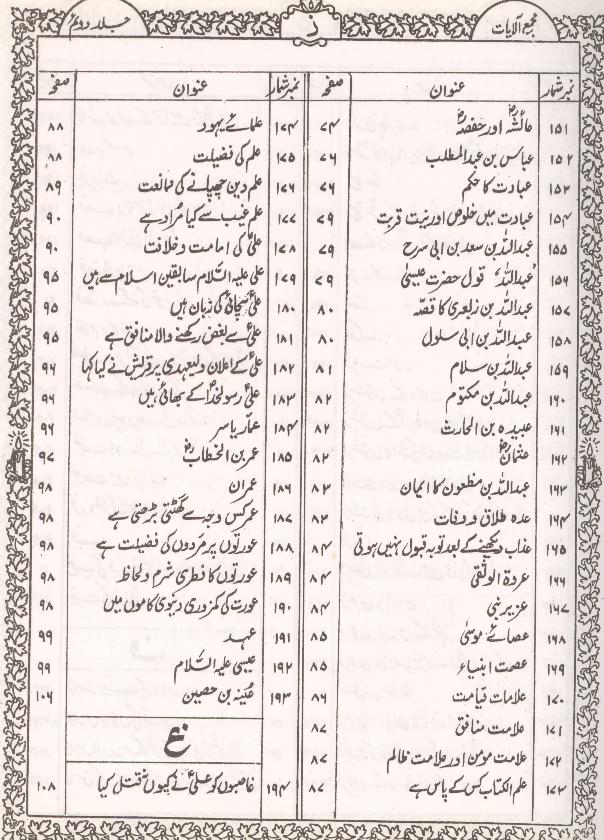 مجمع الآیات
ز
جلد دوم
نمبر شمار عنوان صفحہ
۱۵۱ عائشہؓ اور حفصہؓ ۷۴
۱۵۲ عباس بن عبدالمطلب ۷۶
۱۵۳ عبادت کا حکم ۷۶
۱۵۴ عبادت میں خلوص اور نیت قربت ۷۹
۱۵۵ عبداللہ بن سعد بن ابی سرح ۷۹
۱۵۶ "عبداللہ" قول حضرت عیسیٰ ۷۹
۱۵۷ عبداللہ بن زبعری کا قصہ ۸۰
۱۵۸ عبداللہ بن ابی سلول ۸۰
۱۵۹ عبداللہ بن سلام ۸۱
۱۶۰ عبداللہ بن مکتوم ۸۲
۱۶۱ عبیدہ بن الحارث ۸۲
۱۶۲ عثمانؓ ۸۳
۱۶۳ عبداللہ بن مظعون کا ایمان ۸۳
۱۶۴ عدہ طلاق و وفات ۸۳
۱۶۵ عذاب دیکھنے کے بعد توبہ قبول نہیں ہوتی ۸۴
۱۶۶ عروۃ الوثقیٰ ۸۴
۱۶۷ عزیر نبی ۸۴
۱۶۸ عصائے موسیٰ ۸۵
۱۶۹ عصمت انبیاء ۸۵
۱۷۰ علامات قیامت ۸۶
۱۷۱ علامت منافق ۸۷
۱۷۲ علامت مومن اور علامت ظالم ۸۷
۱۷۳ علم الکتاب کس کے پاس ہے ۸۷
نمبر شمار عنوان صفحہ
۱۷۴ علمائے یہود ۸۸
۱۷۵ علم کی فضیلت ۸۸
۱۷۶ علم دین چھپانے کی ممانعت ۸۹
۱۷۷ علم غیب سے کیا مراد ہے ۹۰
۱۷۸ علیؑ کی امامت و خلافت ۹۰
۱۷۹ علی علیہ السّلام سابقین اسلام سے ہیں ۹۵
۱۸۰ علیؑ سچائی کی زبان ہیں ۹۵
۱۸۱ علیؑ سے بغض رکھنے والا منافق ہے ۹۵
۱۸۲ علیؑ کے اعلان ولیعہدی پر قریش نے کیا کہا ۹۶
۱۸۳ علیؑ رسولخداؐ کے بھائی ہیں ۹۶
۱۸۴ عمار یاسر ۹۶
۱۸۵ عمر بن الخطابؓ ۹۷
۱۸۶ عمران ۹۸
۱۸۷ عمر کس وجہ سے گھٹتی بڑھتی ہے ۹۸
۱۸۸ عورتوں پر مردوں کی فضیلت ہے ۹۸
۱۸۹ عورتوں کا فطری شرم و لحاظ ۹۸
۱۹۰ عورت کی کمزوری دنیوی کاموں میں ۹۸
۱۹۱ عہد ۹۹
۱۹۲ عیسیٰ علیہ السّلام ۹۹
۱۹۳ عینیہ بن حصین ۱۰۶
غ
۱۹۴ غاصبوں کو علیؑ نے کیوں نہ قتل کیا ۱۰۸